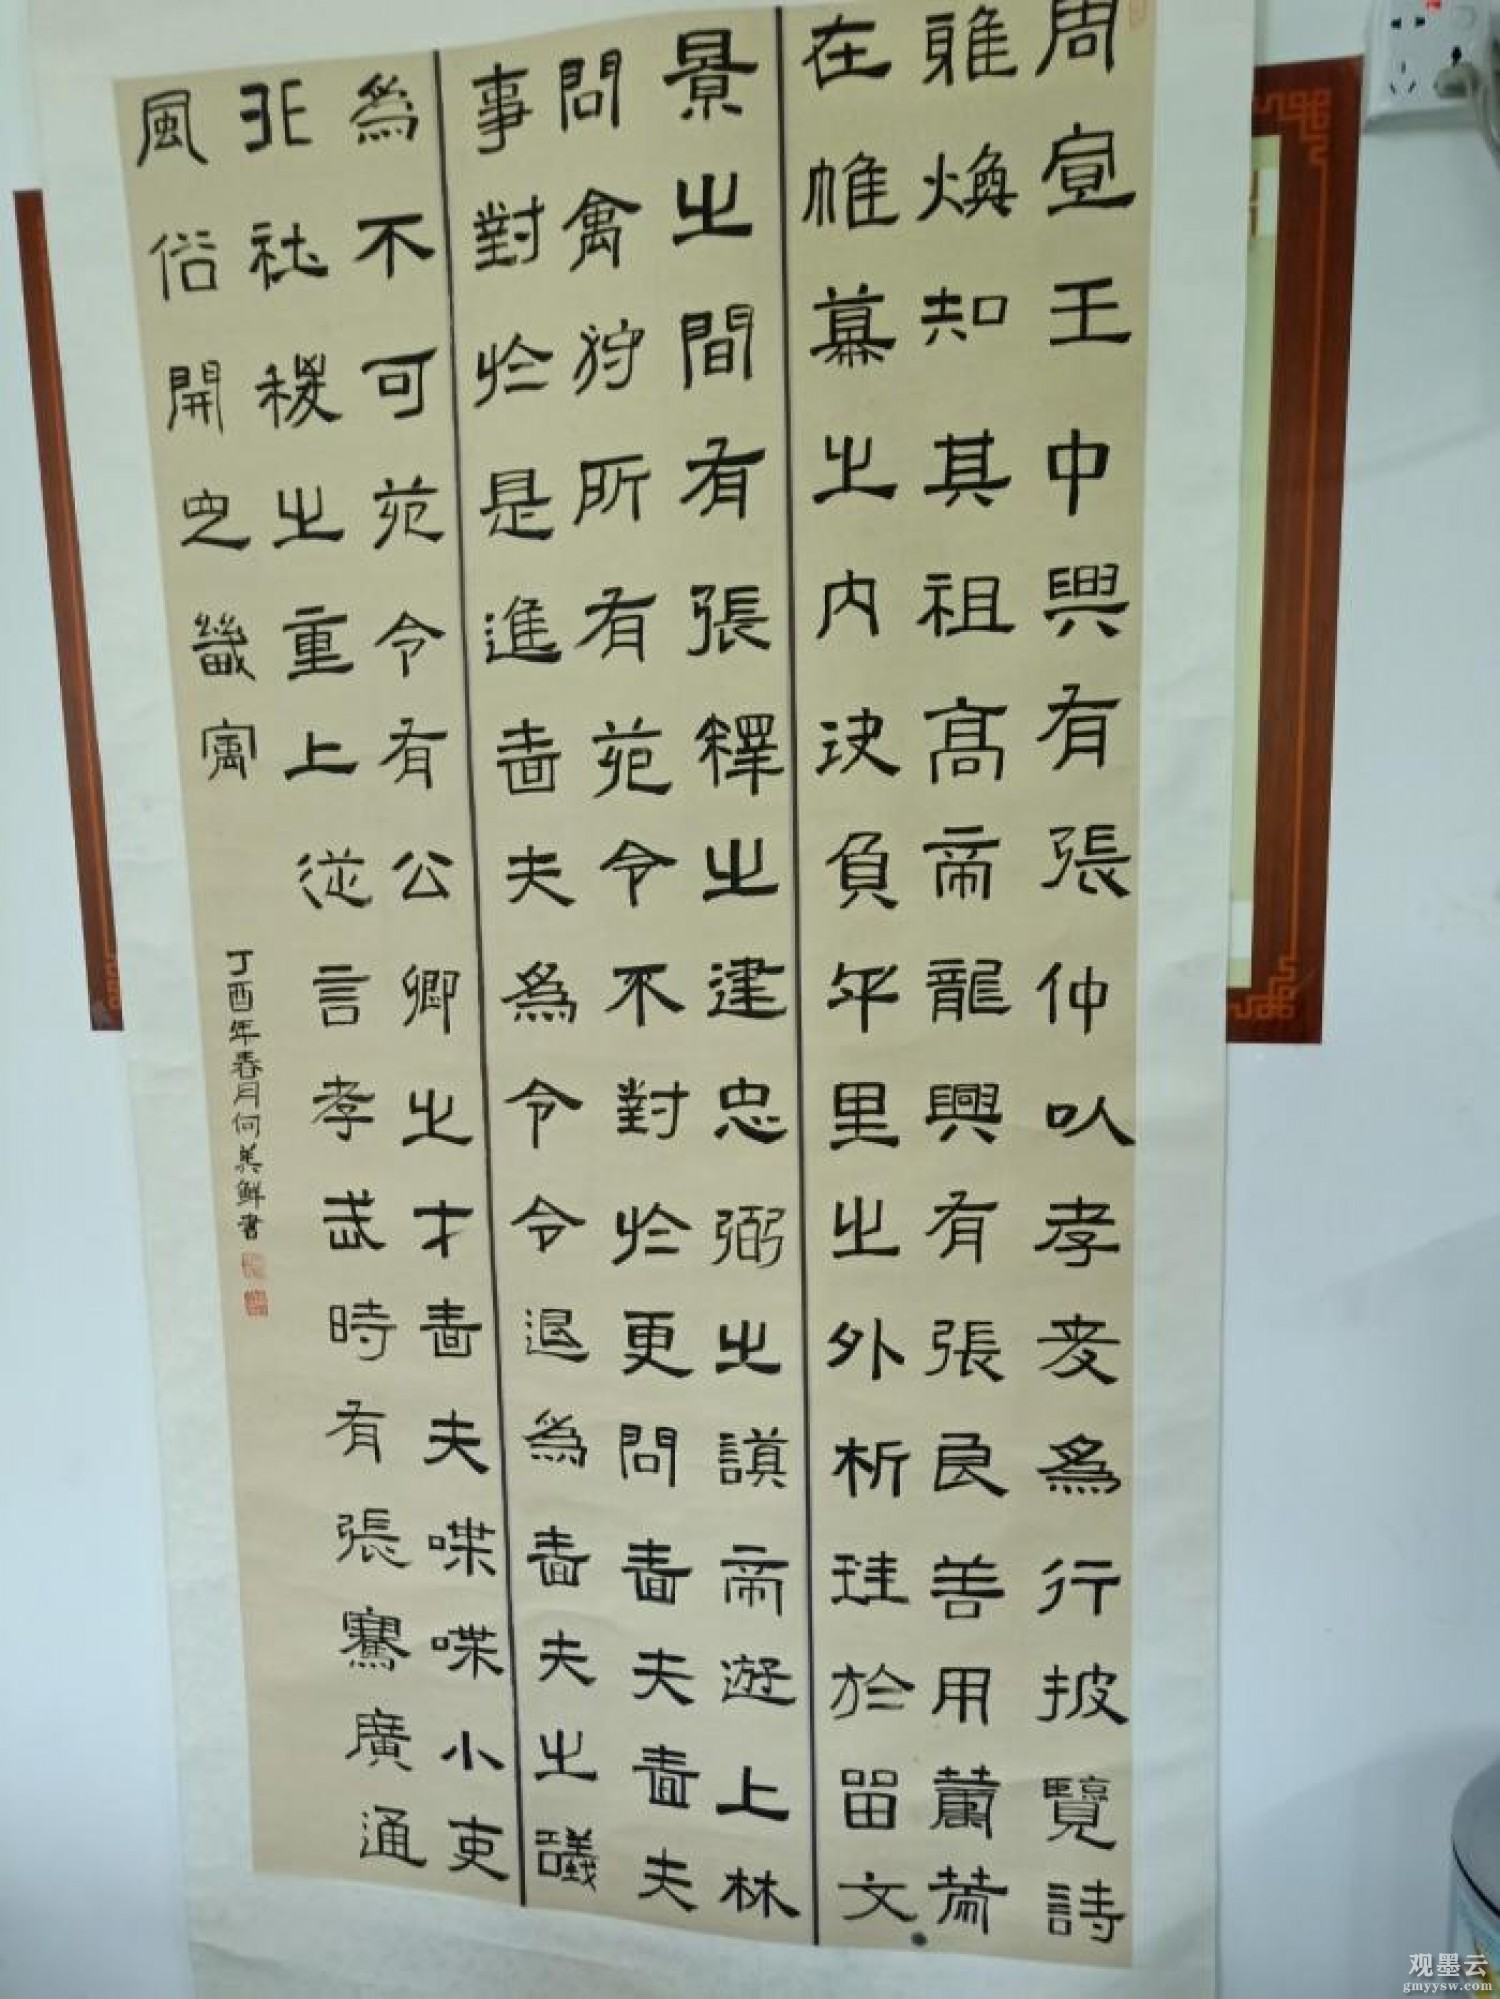 周宣王中興有張仲以孝友為行披覽詩
雅煥知其祖高帝龍興有張良善用籌策
在帷幕之內決負年里之外析珪於留文
景之間有張釋之建忠弼之謨帝遊上林
問禽狩所有苑令不對於更問嗇夫嗇夫
事對於是進嗇夫為令令退為嗇夫之議
為不可苑令有公卿之才嗇夫喋喋小吏
非社稷之重上從言孝武時有張騫廣通
風俗開定畿寓
丁酉年春月何美鮮書
观墨云
gmyysw.com